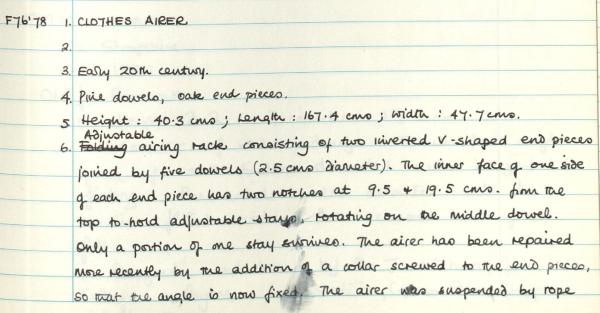 F76'78 1. CLOTHES AIRER
2.
3. Early 20th century.
4. Pine dowels, oak end pieces.
5 Height : 40.3 cms ; Length : 167.4 cms ; Width : 47.7 cms.
Adjustable
6. Folding airing rack consisting of two inverted V-shaped end pieces
joined by five dowels (2.5 cms diameter). The inner face of one side
of each end piece has two notches at 9.5 + 19.5 cms. from the
top to hold adjustable stays, rotating on the middle dowel.
Only a portion of one stay survives. The airer has been repaired
more recently by the addition of a collar screwed to the end pieces,
so that the angle is now fixed. The airer was suspended by rope